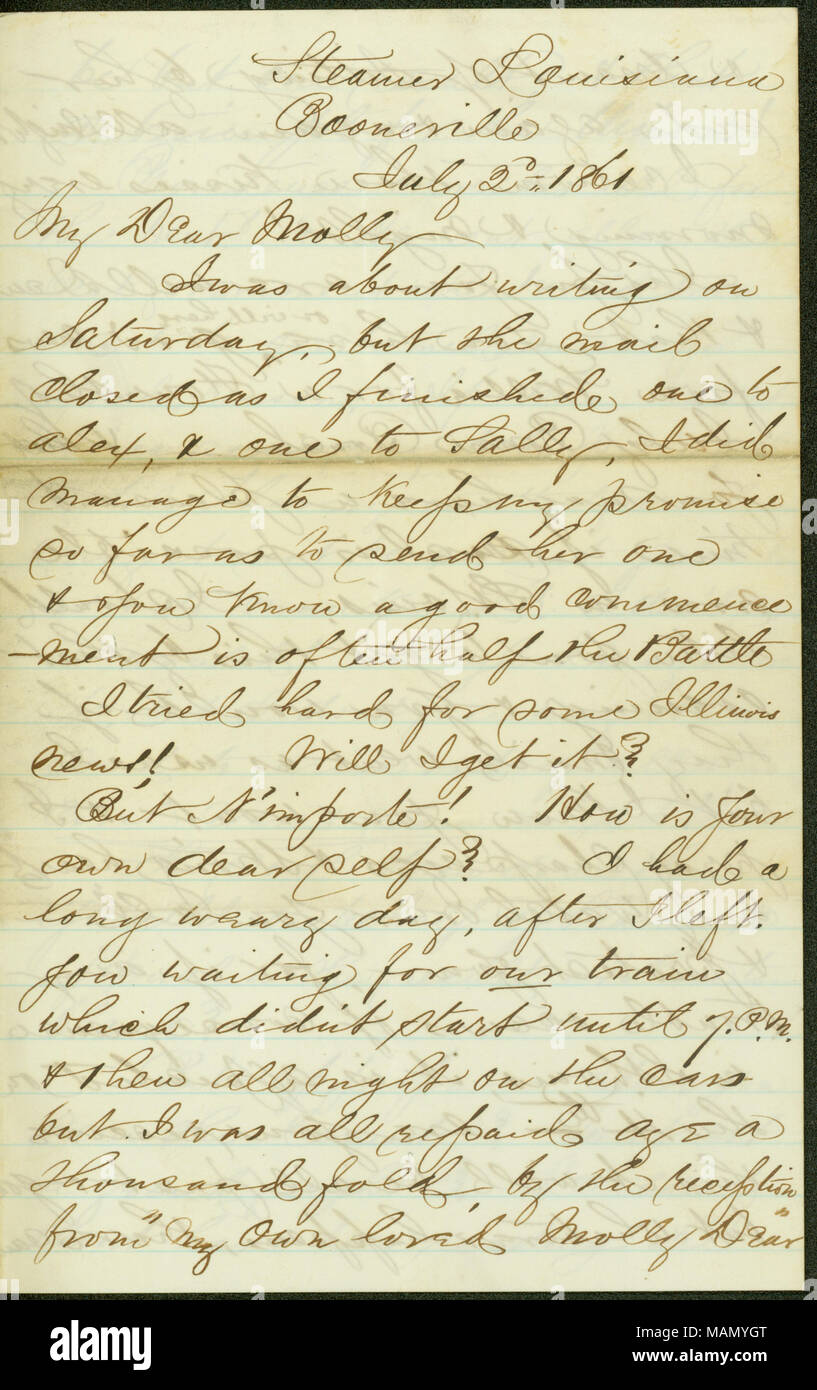 Steamer Louisiana
Booneville
July 2d. 1861
My Dear Molly
I was about writing on
Saturday, but the mail
closed as I finished one to
alex, & one to Sally, I did
manage to keep my promise
so far as to send her one
& you know a good commence
-ment is often half the Battle
I tried hard for some Illinois
news! Will I get it?
But N'importe! How is your
own dear self? I had a
long weary day, after I left.
you waiting for our train
which didn't start until 7. P.M.
& then all night on the cars
but I was all repaid aye a
thousand fold, by the reception
from "My Own loved Molly Dear"
alamy
alamy stock photo
MAMYGT
www.alamy.com